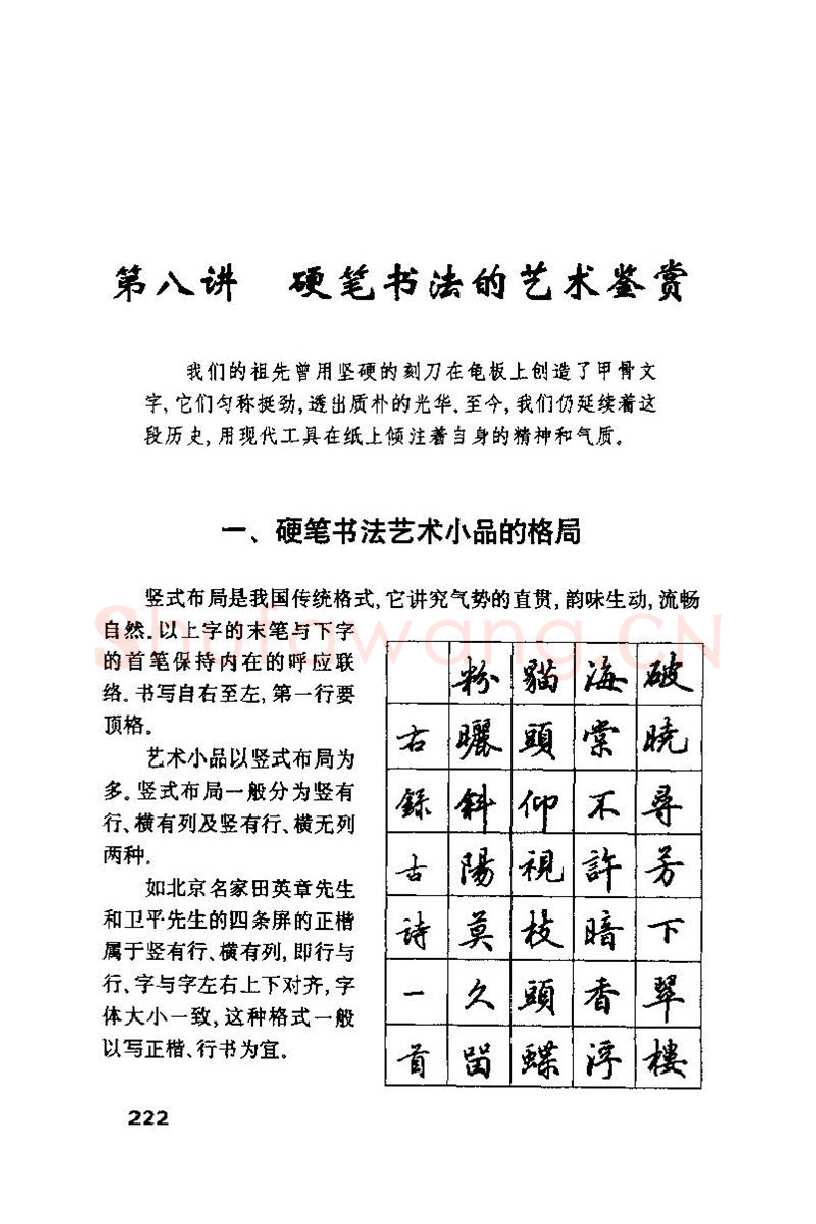 第八讲 硬笔书法的艺术鉴赏
我们的祖先曾用坚硬的刻刀在龟板上创造了甲骨文
字,它们匀称挺劲,透出质朴的光华。至今,我们仍延续着这
段历史,用现代工具在纸上倾注着自身的精神和气质。
一、硬笔书法艺术小品的格局
竖式布局是我国传统格式,它讲究气势的直贯,韵味生动,流畅
自然。以上字的末笔与下字
的首笔保持内在的呼应联
络。书写自右至左,第一行要
顶格。
艺术小品以竖式布局为
多。竖式布局一般分为竖有
行、横有列及竖有行、横无列
两种。
如北京名家田英章先生
和卫平先生的四条屏的正楷
属于竖有行、横有列,即行与
行、字与字左右上下对齐,字
体大小一致,这种格式一般
以写正楷、行书为宜。
破曉尋芳下翠樓
海棠不許暗香浮
貓頭仰視枝頭蝶
粉曬斜陽莫久留
右錄古詩一首
222
Shufawang.CN